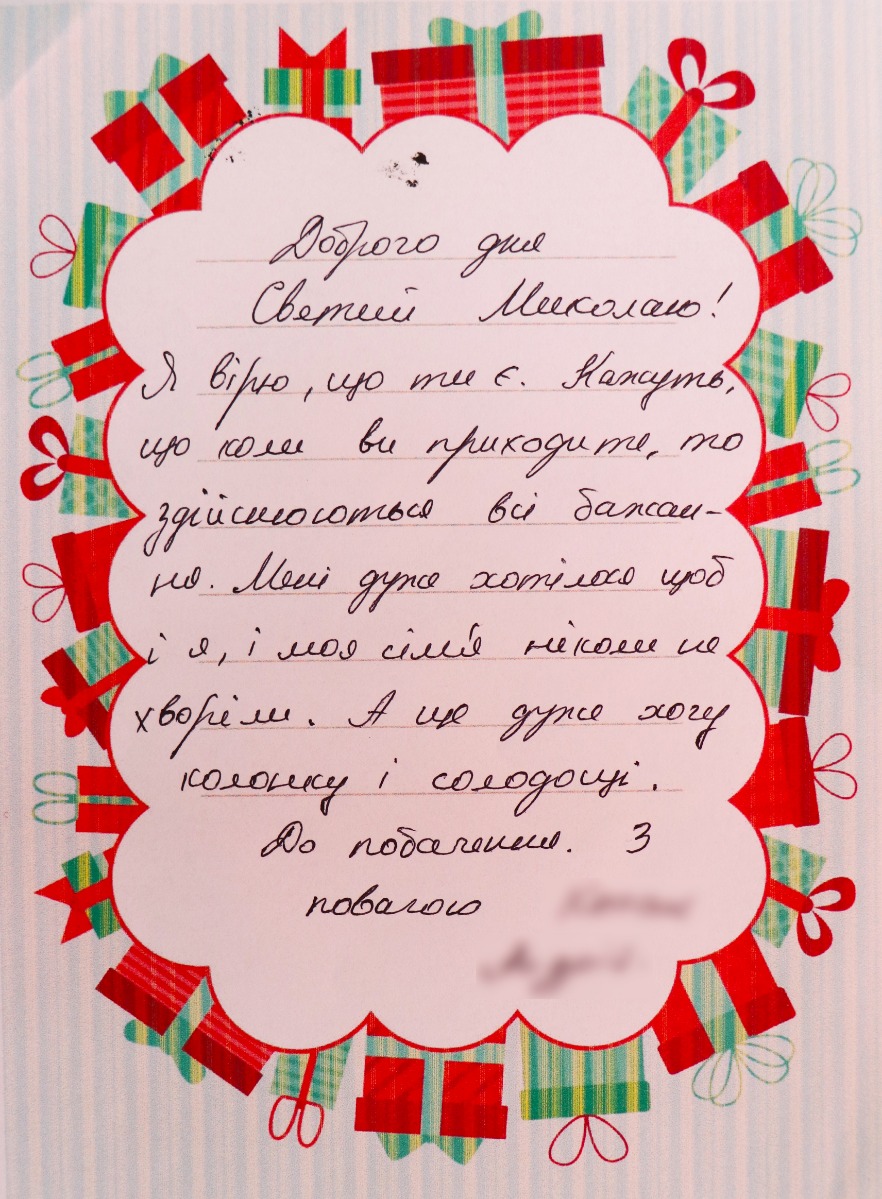 Доброго дня
Светий Миколаю!
Я вірю, що ти є. Кажуть,
що коли ви приходите, то
здійснюються всі бажан-
ня. Мені дуже хотілося щоб
і я, і моя сім'я ніколи не
хворіли. А ще дуже хочу
колонку і солодощі.
До побачення. З
повагою